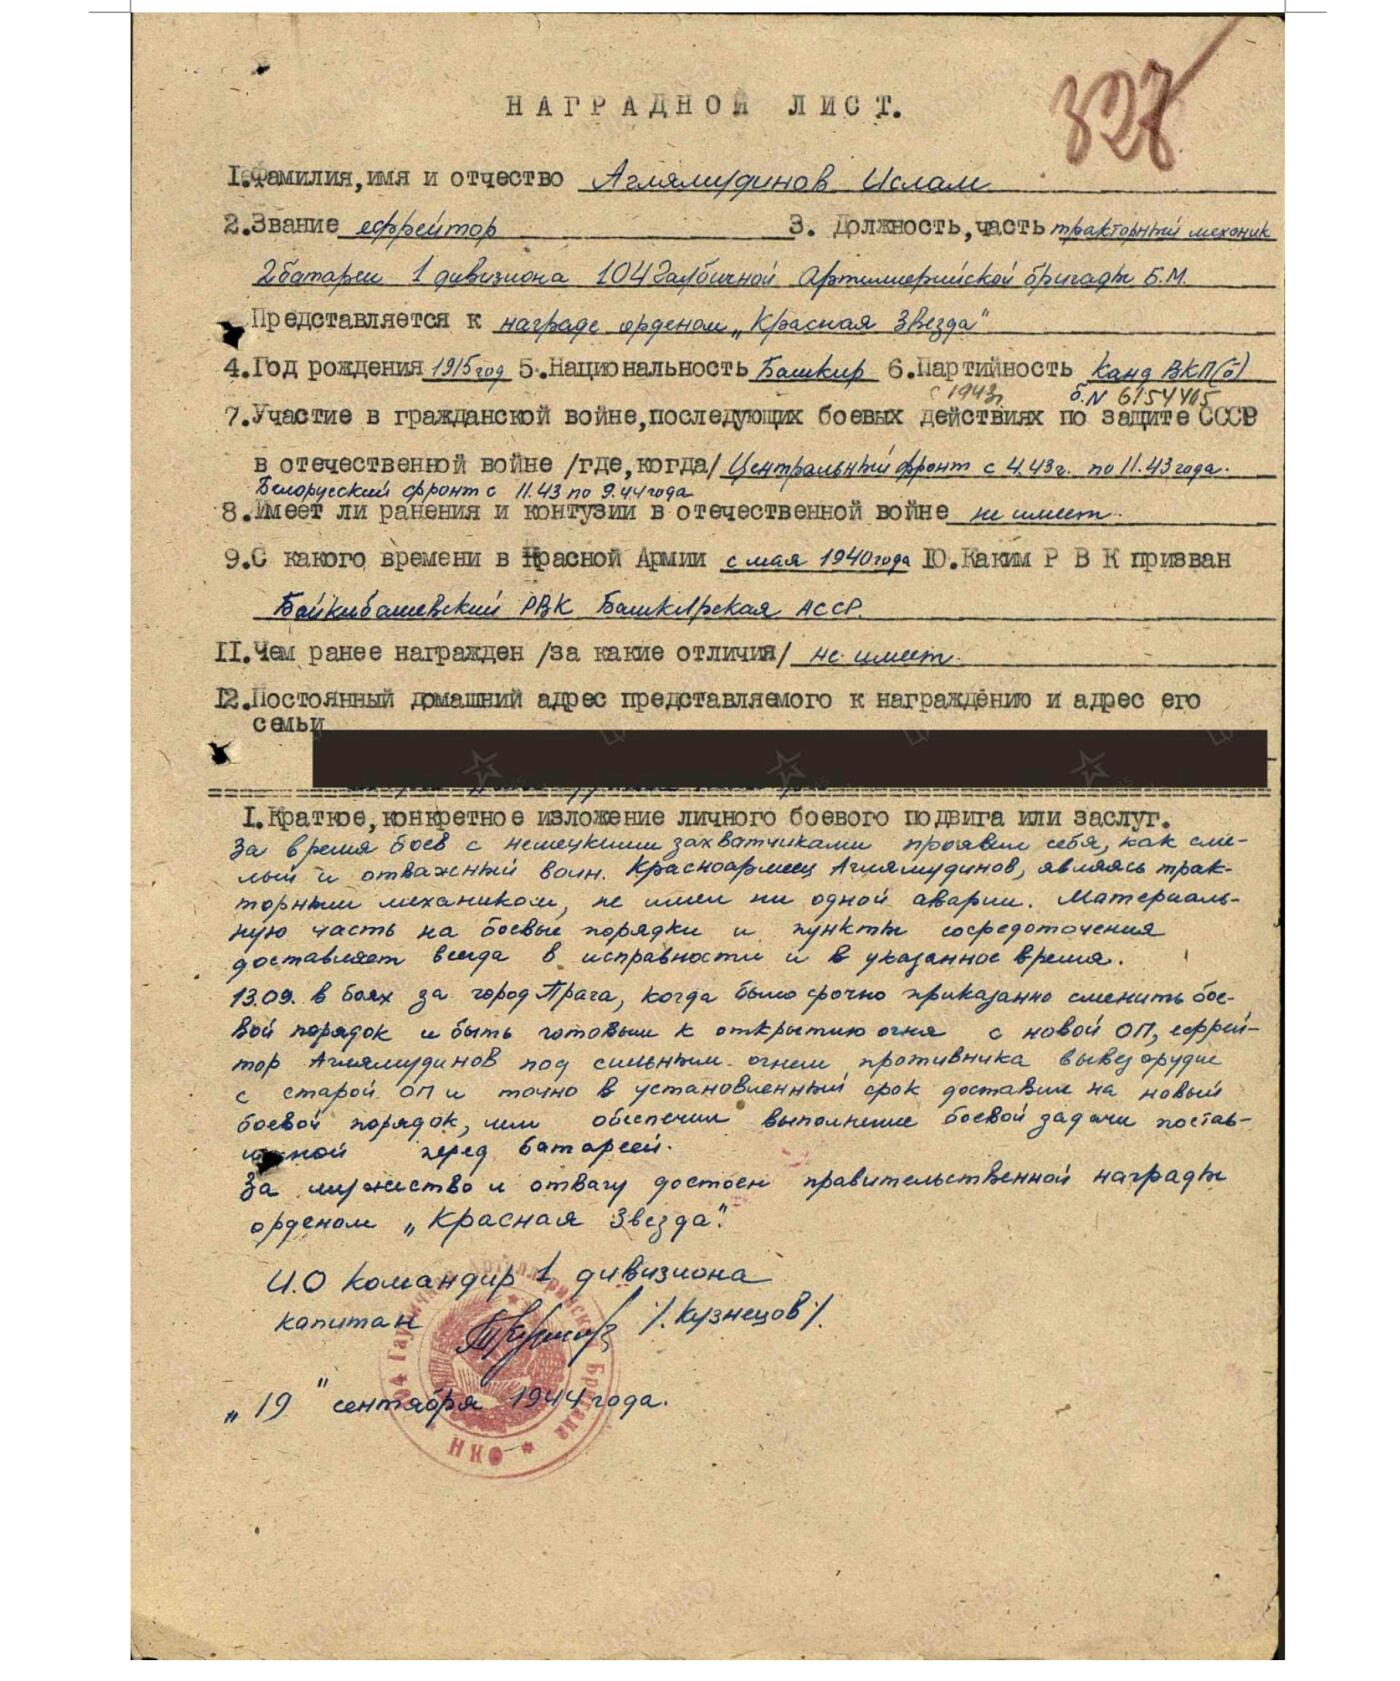 328
НАГРАДНОЙ ЛИСТ.
1. Фамилия, имя и отчество Аглямудинов Ислам
2. Звание ефрейтор 3. Должность, часть тракторный механик
2 батареи 1 дивизиона 104 Гаубичной Артиллерийской бригады Б.М.
Представляется к награде орденом „Красная Звезда"
4. Год рождения 1915 год 5. Национальность Башкир 6. Партийность Канд ВКП(б)
с 1943г б.N 6154405
7. Участие в гражданской войне, последующих боевых действиях по защите СССР
в отечественной войне /где, когда/ Центральный фронт с 4.43г. по 11.43 года.
Белорусский фронт с 11.43 по 9.44 года
8. Имеет ли ранения и контузии в отечественной войне не имеет.
9. С какого времени в Красной Армии с мая 1940 года 10. Каким Р В К призван
Байкибашевский РВК Башкирская АССР.
11. Чем ранее награжден /за какие отличия/ не имеет.
12. Постоянный домашний адрес представляемого к награждению и адрес его
семьи
I. Краткое, конкретное изложение личного боевого подвига или заслуг.
За время боев с немецкими захватчиками проявил себя, как сме-
лый и отважный воин. Красноармеец Аглямудинов, являясь трак-
торным механиком, не имел ни одной аварии. Материаль-
ную часть на боевые порядки и пункты сосредоточения
доставляет всегда в исправности и в указанное время.
13.09. в боях за город Прага, когда было срочно приказанно сменить бое-
вой порядок и быть готовым к открытию огня с новой ОП, ефрей-
тор Аглямудинов под сильным огнем противника вывез орудие
с старой ОП и точно в установленный срок доставил на новый
боевой порядок, чем обеспечил выполнение боевой задачи постав-
ленной перед батареей.
За мужество и отвагу достоен правительственной награды
орденом „Красная Звезда".
И.О командир 1 дивизиона
капитан /Кузнецов/.
„19" сентября 1944 года.
104 Гаубичная Артиллерийская Бригада
НКО